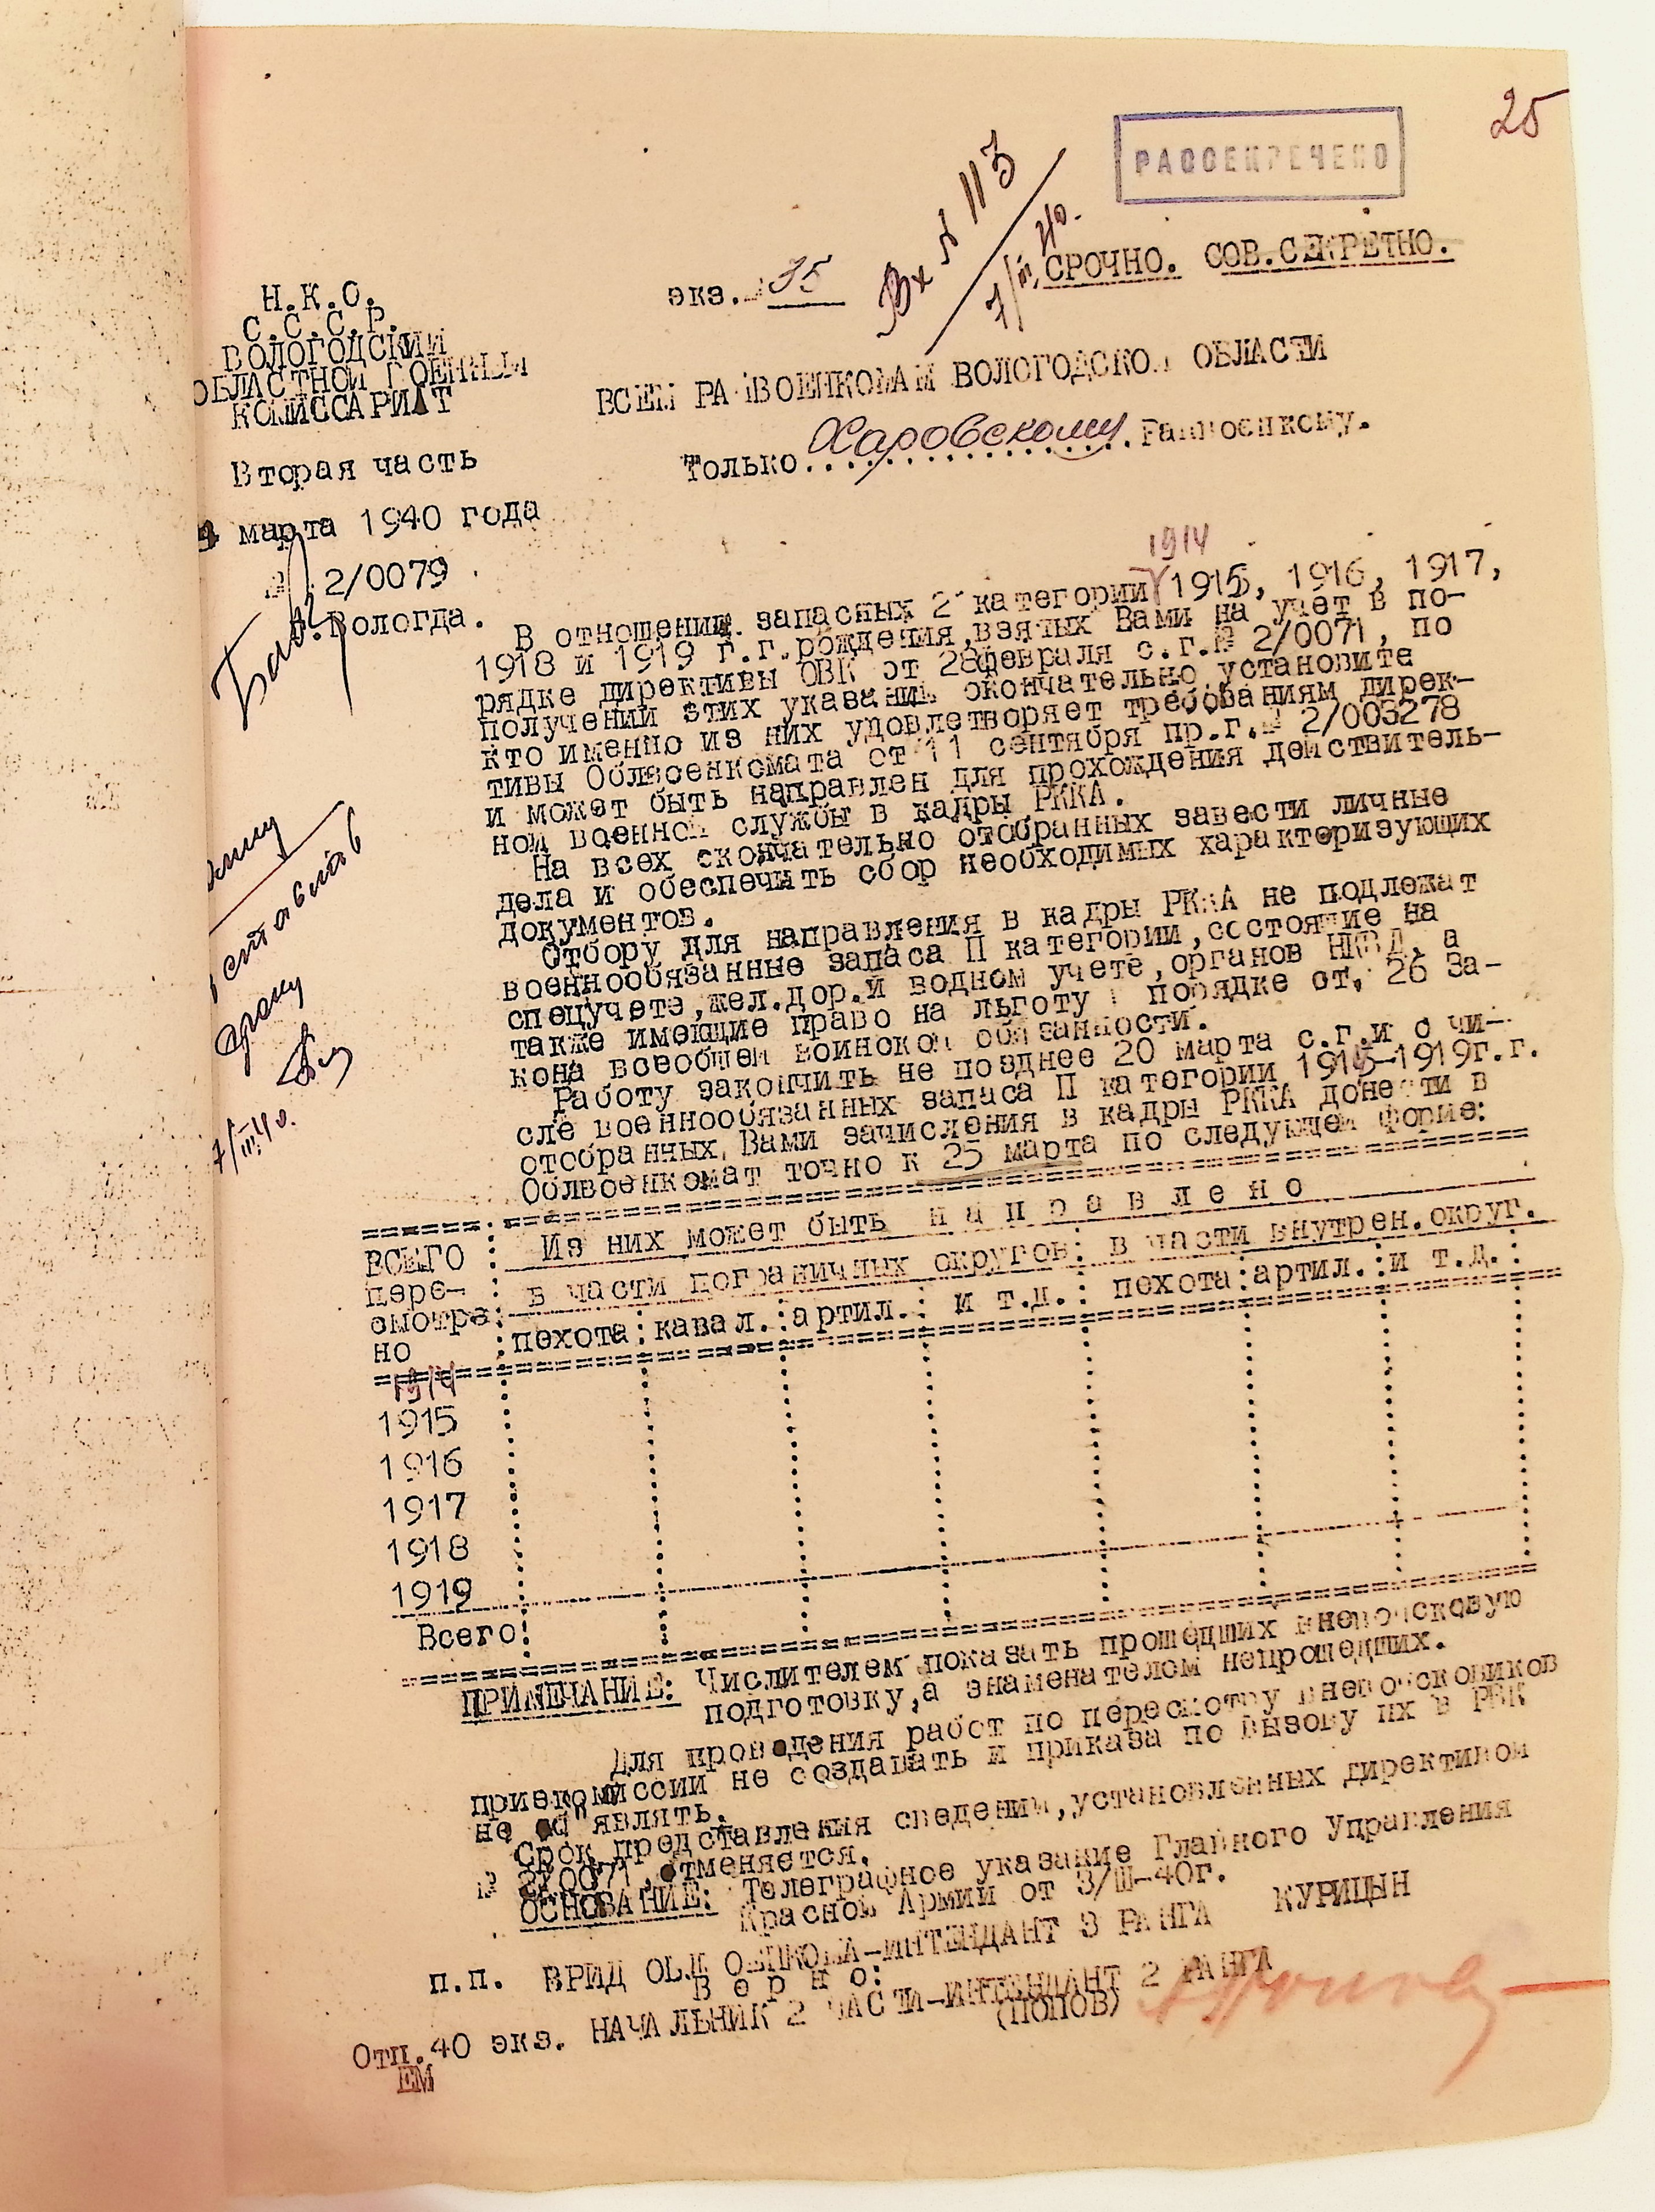 25
РАССЕКРЕЧЕНО
Вх № 113
7/III 40.
экз. 35
СРОЧНО. СОВ.СЕКРЕТНО.
Н.К.О.
С.С.С.Р.
ВОЛОГОДСКИЙ
ОБЛАСТНОЙ ВОЕННЫЙ
КОМИССАРИАТ
Вторая часть
4 марта 1940 года
№ 2/0079
г.Вологда.
ВСЕМ РАЙВОЕНКОМАМ ВОЛОГОДСКОЙ ОБЛАСТИ
Только Харовскому Райвоенкому.
1914
В отношении запасных 2 категории 1915, 1916, 1917,
1918 и 1919 г.г.рождения,взятых Вами на учет в по-
рядке директивы ОВК от 28февраля с.г.№ 2/0071, по
получении этих указаний окончательно установите
кто именно из них удовлетворяет требованиям дирек-
тивы Облвоенкомата от 11 сентября пр.г.№ 2/003278
и может быть направлен для прохождения действитель-
ной военной службы в кадры РККА.
На всех окончательно отобранных завести личные
дела и обеспечить сбор необходимых характеризующих
документов.
Отбору для направления в кадры РККА не подлежат
военнообязанные запаса П категории,состоящие на
спецучете,жел.дор.и водном учете,органов НКВД, а
также имеющие право на льготу в порядке ст. 26 За-
кона всеобщей воинской обязанности.
Работу закончить не позднее 20 марта с.г.и о чи-
сле военнообязанных запаса П категории 1914-1919г.г.
отобранных Вами зачисления в кадры РККА донести в
Облвоенкомат точно к 25 марта по следующей форме:
ВСЕГО
пере-
смотре
но
Из них может быть н а п р а в л е н о
в части пограничных округов: в части внутрен.округ.
пехота: кавал.: артил.: и т.д.: пехота: артил.: и т.д.:
1914
1915
1916
1917
1918
1919
Всего
ПРИМЕЧАНИЕ: Числителем показать прошедших вневойсковую
подготовку,а знаменателем непрошедших.
Для проведения работ по пересмотру вневойсковиков
приемкомиссии не создавать и приказа по вызову их в РВК
не об"являть.
Срок представления сведений,установленных директивой
№ 2/0071,отменяется.
ОСНОВАНИЕ: Телеграфное указание Главного Управления
Красной Армии от 3/III-40г.
п.п. ВРИД ОБЛВОЕНКОМА-ИНТЕНДАНТ 3 РАНГА КУРИЦЫН
В е р н о:
НАЧАЛЬНИК 2 ЧАСТИ-ИНТЕНДАНТ 2 РАНГА
(ПОПОВ)
Отп.40 экз.
ЕМ
сроку
7/III 40.